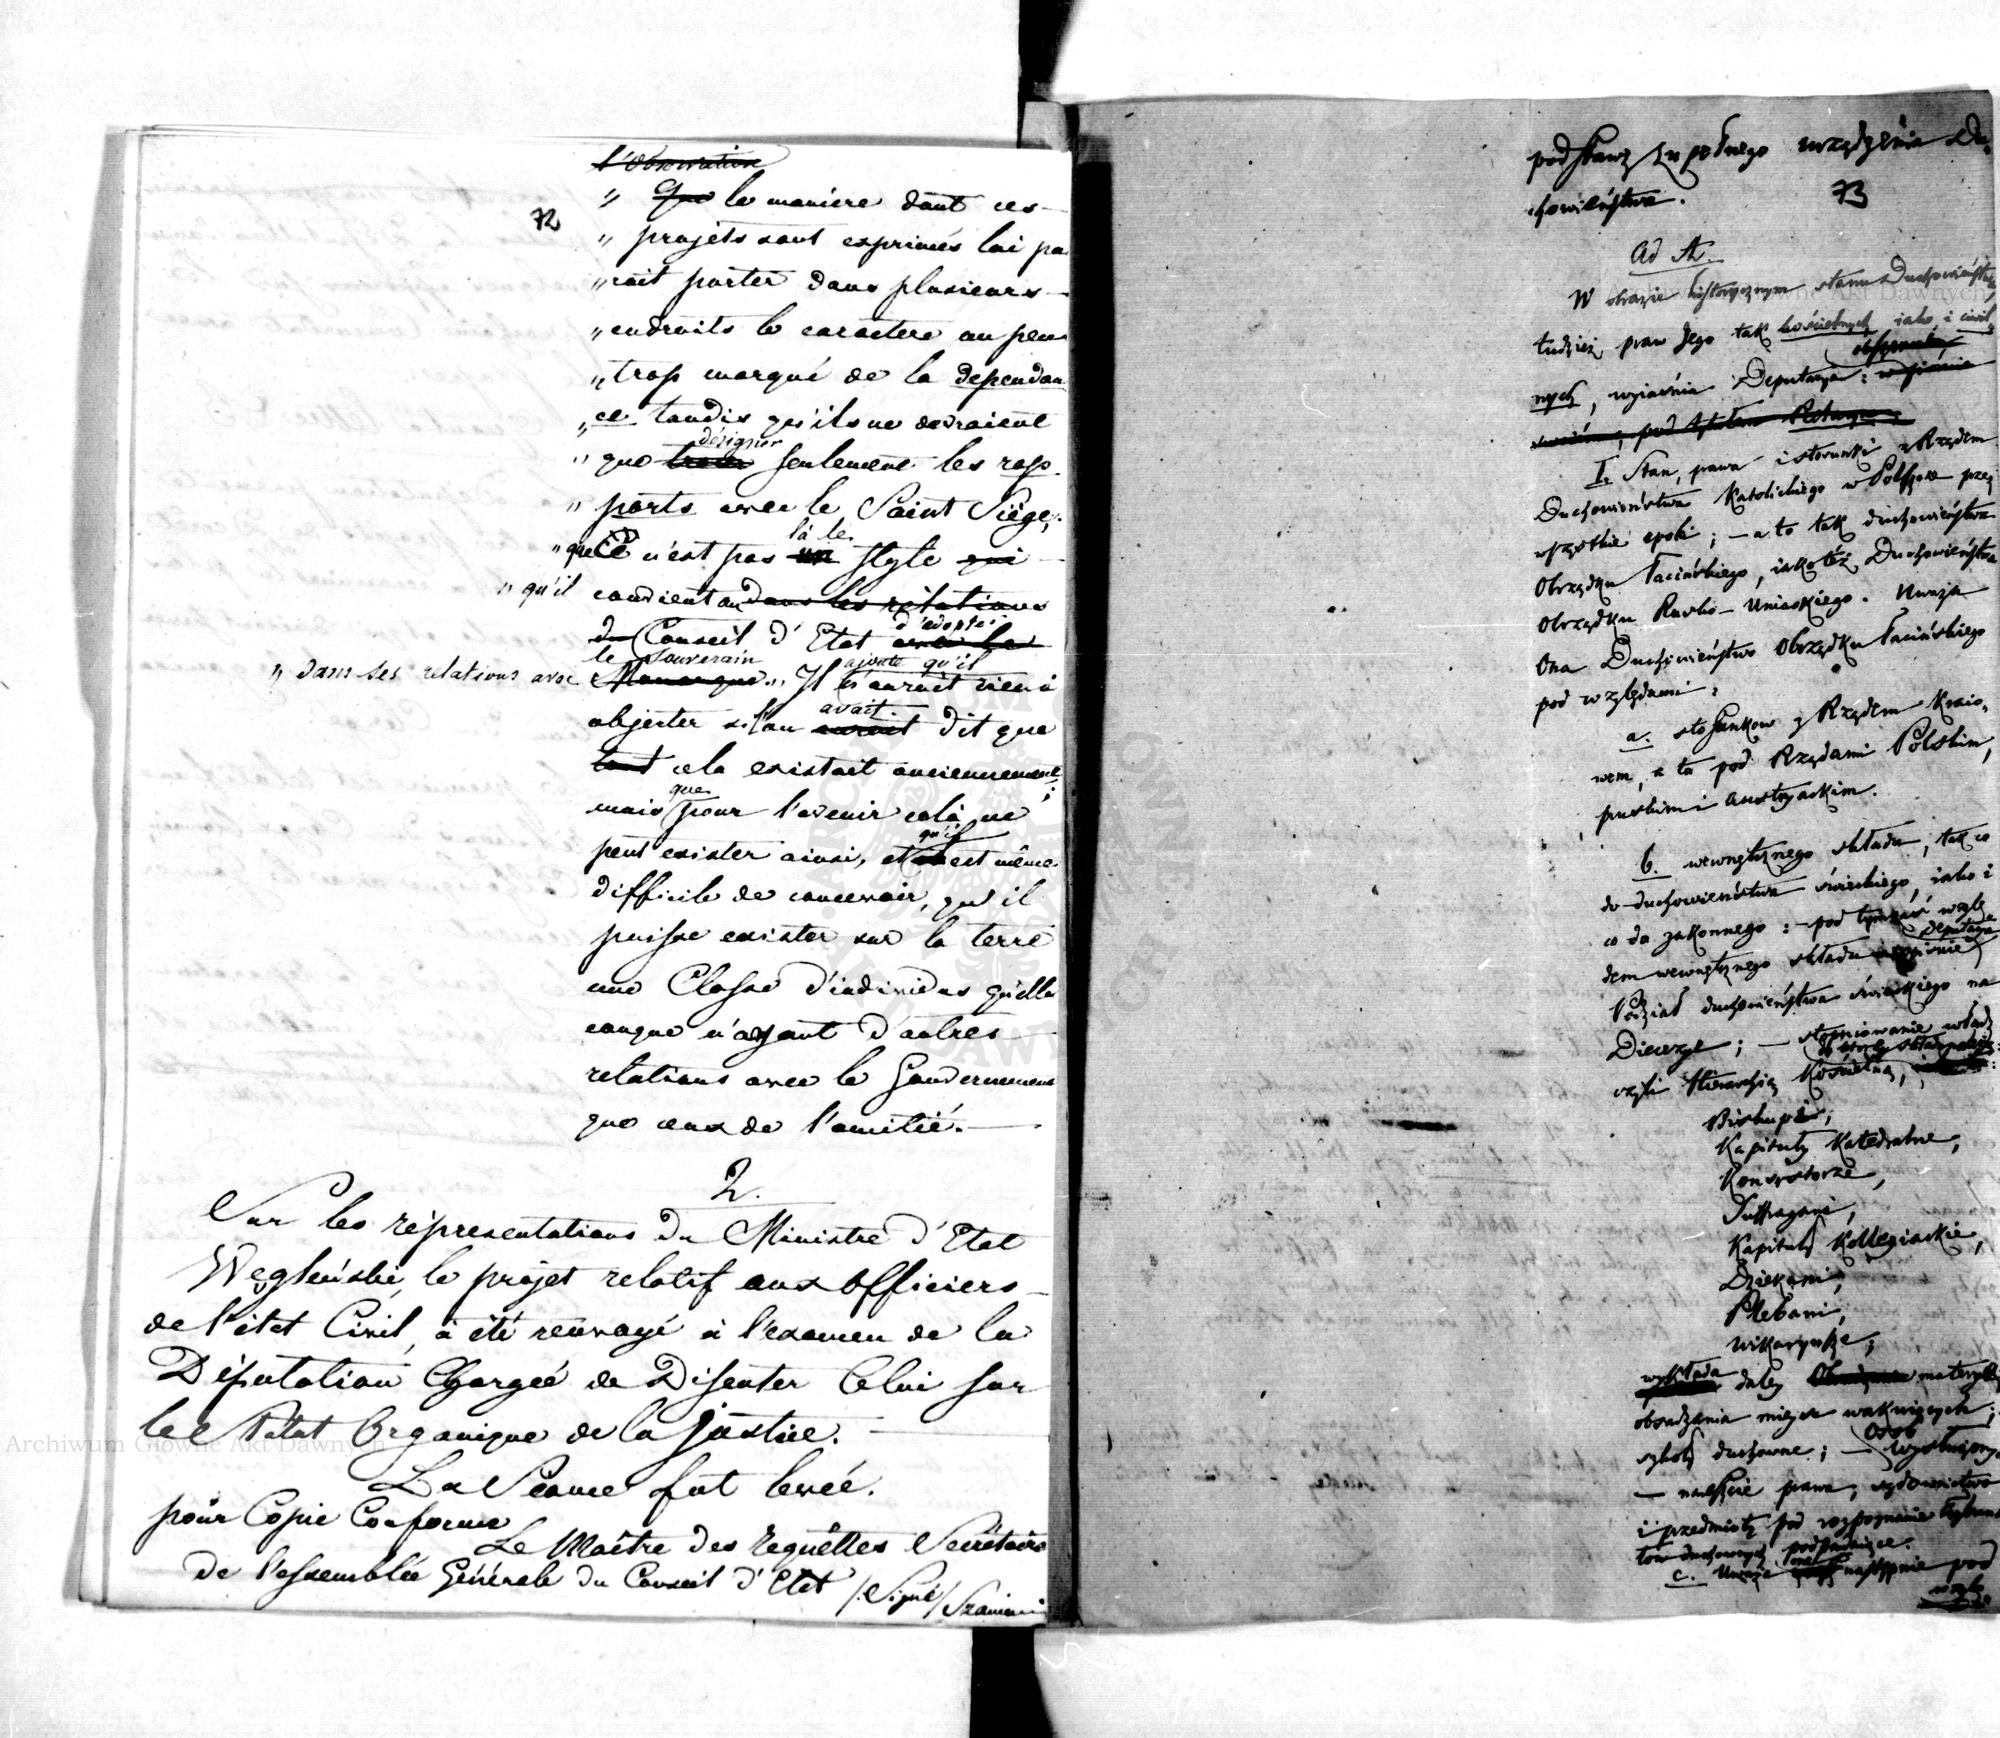 l'observation
" Que la manière dont ces
72
" projets sont exprimés lui pa
" rait porter dans plusieurs
" endroits le caractère un peu
" trop marqué de la dependan
" ce tandis qu'ils ne devraient
désigner
" que seulement les rap
" ports avec le Saint Siège,
là le
" que Ce n'est pas un style qui
" qu'il convient au dans les relations
d'adopter
du Conseil d'Etat avec le
le souverain ajoute qu'il
" dans ses relations avec Monarque " Il n'aurait rien à
avait
objecter si l'on dit que
tout cela existait anciennement;
que
mais pour l'avenir cela ne
qu'il
peut exister ainsi, et est même
difficile de concevoir, qu'il
puisse exister sur la terre
une Classe d'individus quelle
conque n'ayant d'autres
relations avec le Gouvernement
que ceux de l'amitié.
2.
Sur les réprésentations du Ministre d'Etat
Węgleński, le projet relatif aux officiers
de l'état Civil, à été renvoyé à l'examen de la
Députation Chargée de Discuter Celui sur
le Statut Organique de la justice.
La Séance fut levée.
pour Copie Conforme
Le Maître des requêttes Secrétaire
de l'assemblée Générale du Conseil d'Etat /Signé/ Szaniawski
podstawę zupełnego urządzenia Du,
73
chowieństwa.
Ad A.
W obrazie historycznym stanu Duchowieństwa,
tudzież praw Jego tak kościelnych iako i cywil,
nych, wyiaśnia Deputacya:
pod tytułem
I. Stan, prawa i stosunki z Rządem
Duchowieństwa Katolickiego w Polszcze przez
wszystkie epoki; – a to tak duchowieństwa
Obrządku Łacińskiego, iakoteż Duchowieństwa
Obrządku Rusko-Uniackiego. Uważa
Ona Duchowieństwo Obrządku Łacińskiego
pod względami:
a. stosunkow z Rządem Kraio,
wem, a to pod Rządami Polskim,
pruskim i Austryackim.
b. wewnętrznego składu, tak co
do duchowieństwa świeckiego, iako i
co do zakonnego: – pod tymże wzglę
Deputacya
dem wewnętrznego składu
Podział duchowieństwa świeckiego na
Diecezye; – stopniowanie władz
czyli Hierarchią Kościelną,
Biskupi;
Kapituły Katedralne,
Konsystorze,
Suffragani,
Kapituły Kollegiackie,
Dziekani,
Plebani,
Wikaryusze;
wykłada daley materyą
obsadzania mieysc wakuiących;
Osób
szkoły duchowne; – wysłużonych
– nareszcie prawa, sądownictwo
i przedmioty pod rozpoznanie Trybuna
łów duchownych podpadaiące.
c. Uważa następnie pod
wzglę,
Archiwum Główne Akt Dawnych